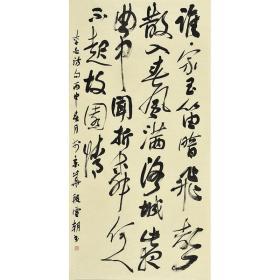 誰家玉笛暗飛聲
散入春風滿洛城此夜
曲中聞折柳何人
不起故園情
李白詩句丙申春月於京華段雲朝書